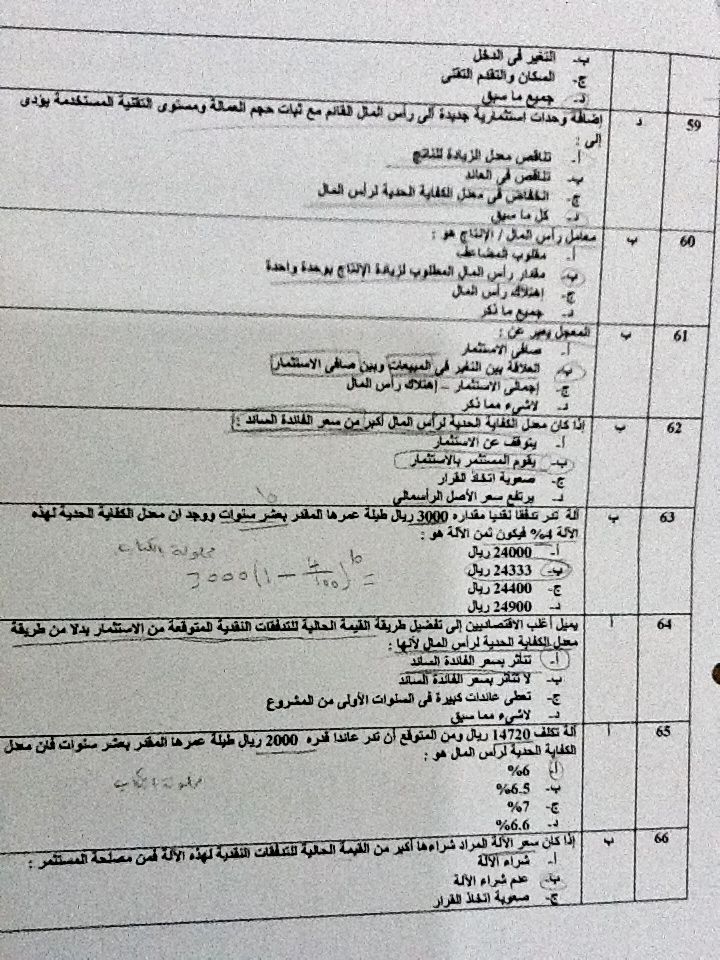 ب- التغير فى الدخل
ج- السكان والتقدم التقنى
د- جميع ما سبق
59 د إضافة وحدات استثمارية جديدة الى رأس المال القائم مع ثبات حجم العمالة ومستوى التقنية المستخدمة يؤدى
إلى :
أ- تناقص معدل الزيادة للناتج
ب- تناقص فى العائد
ج- انخفاض فى معدل الكفاية الحدية لرأس المال
د- كل ما سبق
60 ب معامل رأس المال / الإنتاج هو :
أ- مقلوب المضاعف
ب- مقدار رأس المال المطلوب لزيادة الإنتاج بوحدة واحدة
ج- إهتلاك رأس المال
د- جميع ما ذكر
61 ب المعجل يعبر عن :
أ- صافى الاستثمار
ب- العلاقة بين التغير فى المبيعات وبين صافى الاستثمار
ج- إجمالى الاستثمار – إهتلاك رأس المال
د- لاشيء مما ذكر
62 ب إذا كان معدل الكفاية الحدية لرأس المال أكبر من سعر الفائدة السائد :
أ- يتوقف عن الاستثمار
ب- يقوم المستثمر بالاستثمار
ج- صعوبة اتخاذ القرار
د- يرتفع سعر الأصل الرأسمالى
10
63 ب آلة تدر تدفقا نقديا مقداره 3000 ريال طيلة عمرها المقدر بعشر سنوات ووجد ان معدل الكفاية الحدية لهذه
الآلة 4% فيكون ثمن الآلة هو :
أ- 24000 ريال
ب- 24333 ريال
ج- 24400 ريال
د- 24900 ريال
محلولة بالكتاب
3000(1 − 4/100)^10 =
64 أ يميل أغلب الاقتصاديين إلى تفضيل طريقة القيمة الحالية للتدفقات النقدية المتوقعة من الاستثمار بدلا من طريقة
معدل الكفاية الحدية لرأس المال لأنها :
أ- تتأثر بسعر الفائدة السائد
ب- لا تتأثر بسعر الفائدة السائد
ج- تعطى عائدات كبيرة فى السنوات الأولى من المشروع
د- لاشيء مما سبق
65 أ آلة تكلف 14720 ريال ومن المتوقع أن تدر عائدا قدره 2000 ريال طيلة عمرها المقدر بعشر سنوات فان معدل
الكفاية الحدية لرأس المال هو :
أ- 6%
ب- 6.5%
ج- 7%
د- 6.6%
محلولة بالكتاب
66 ب إذا كان سعر الآلة المراد شراءها أكبر من القيمة الحالية للتدفقات النقدية لهذه الآلة فمن مصلحة المستثمر :
أ- شراء الآلة
ب- عدم شراء الآلة
ج- صعوبة اتخاذ القرار